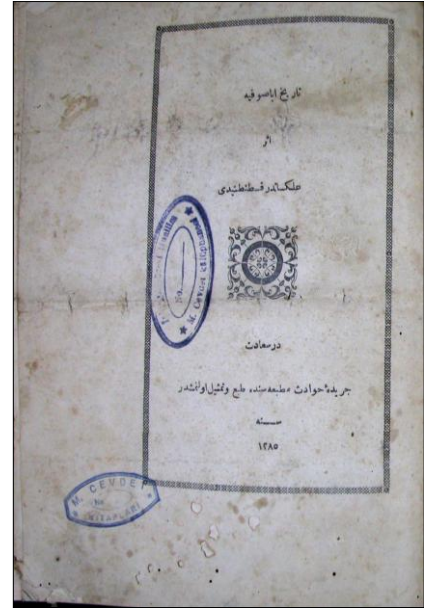 تاريخ اياصوفيه
اثر
علكساندر قسطنطنيدى
در سعادت
جريدهٔ حوادث مطبعه سنده طبع وتمثيل اولنمشدر
سنه
١٢٨٥
M. CEVDET
KİTAPLARI